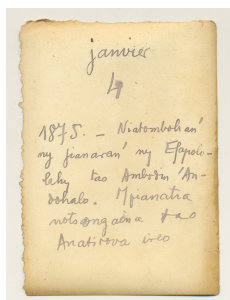 janvier
4
1875. - Niatombohan'
ny fianaran' ny Efapolo-
lahy tao Ambodin 'An-
dohalo. Mpianatra
notsongaina tao
Anatirova ireo